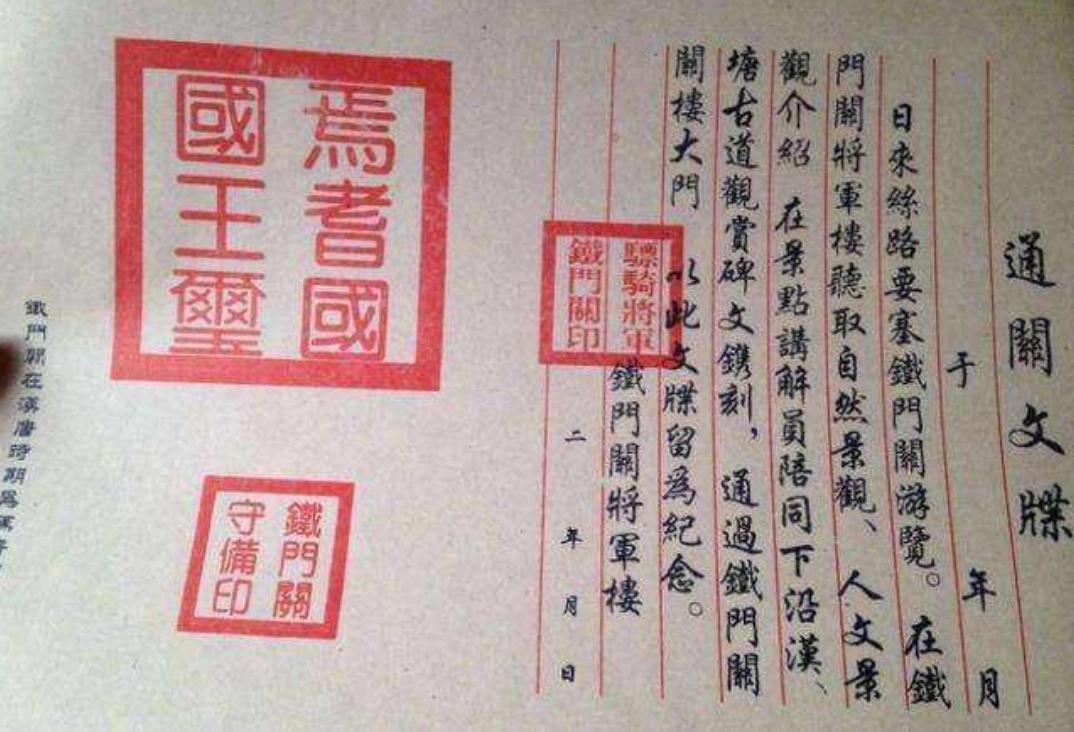 通關文牒
于 年 月
日來絲路要塞鐵門關游覽。在鐵
門關將軍樓聽取自然景觀、人文景
觀介紹 在景點講解員陪同下沿漢、
塘古道觀賞碑文鐫刻，通過鐵門關
關樓大門 以此文牒留為紀念。
鐵門關將軍樓
驃騎將軍
鐵門關印
二 年 月 日
焉耆國
國王璽
鐵門關
守備印
鐵門關在漢唐時期為焉耆